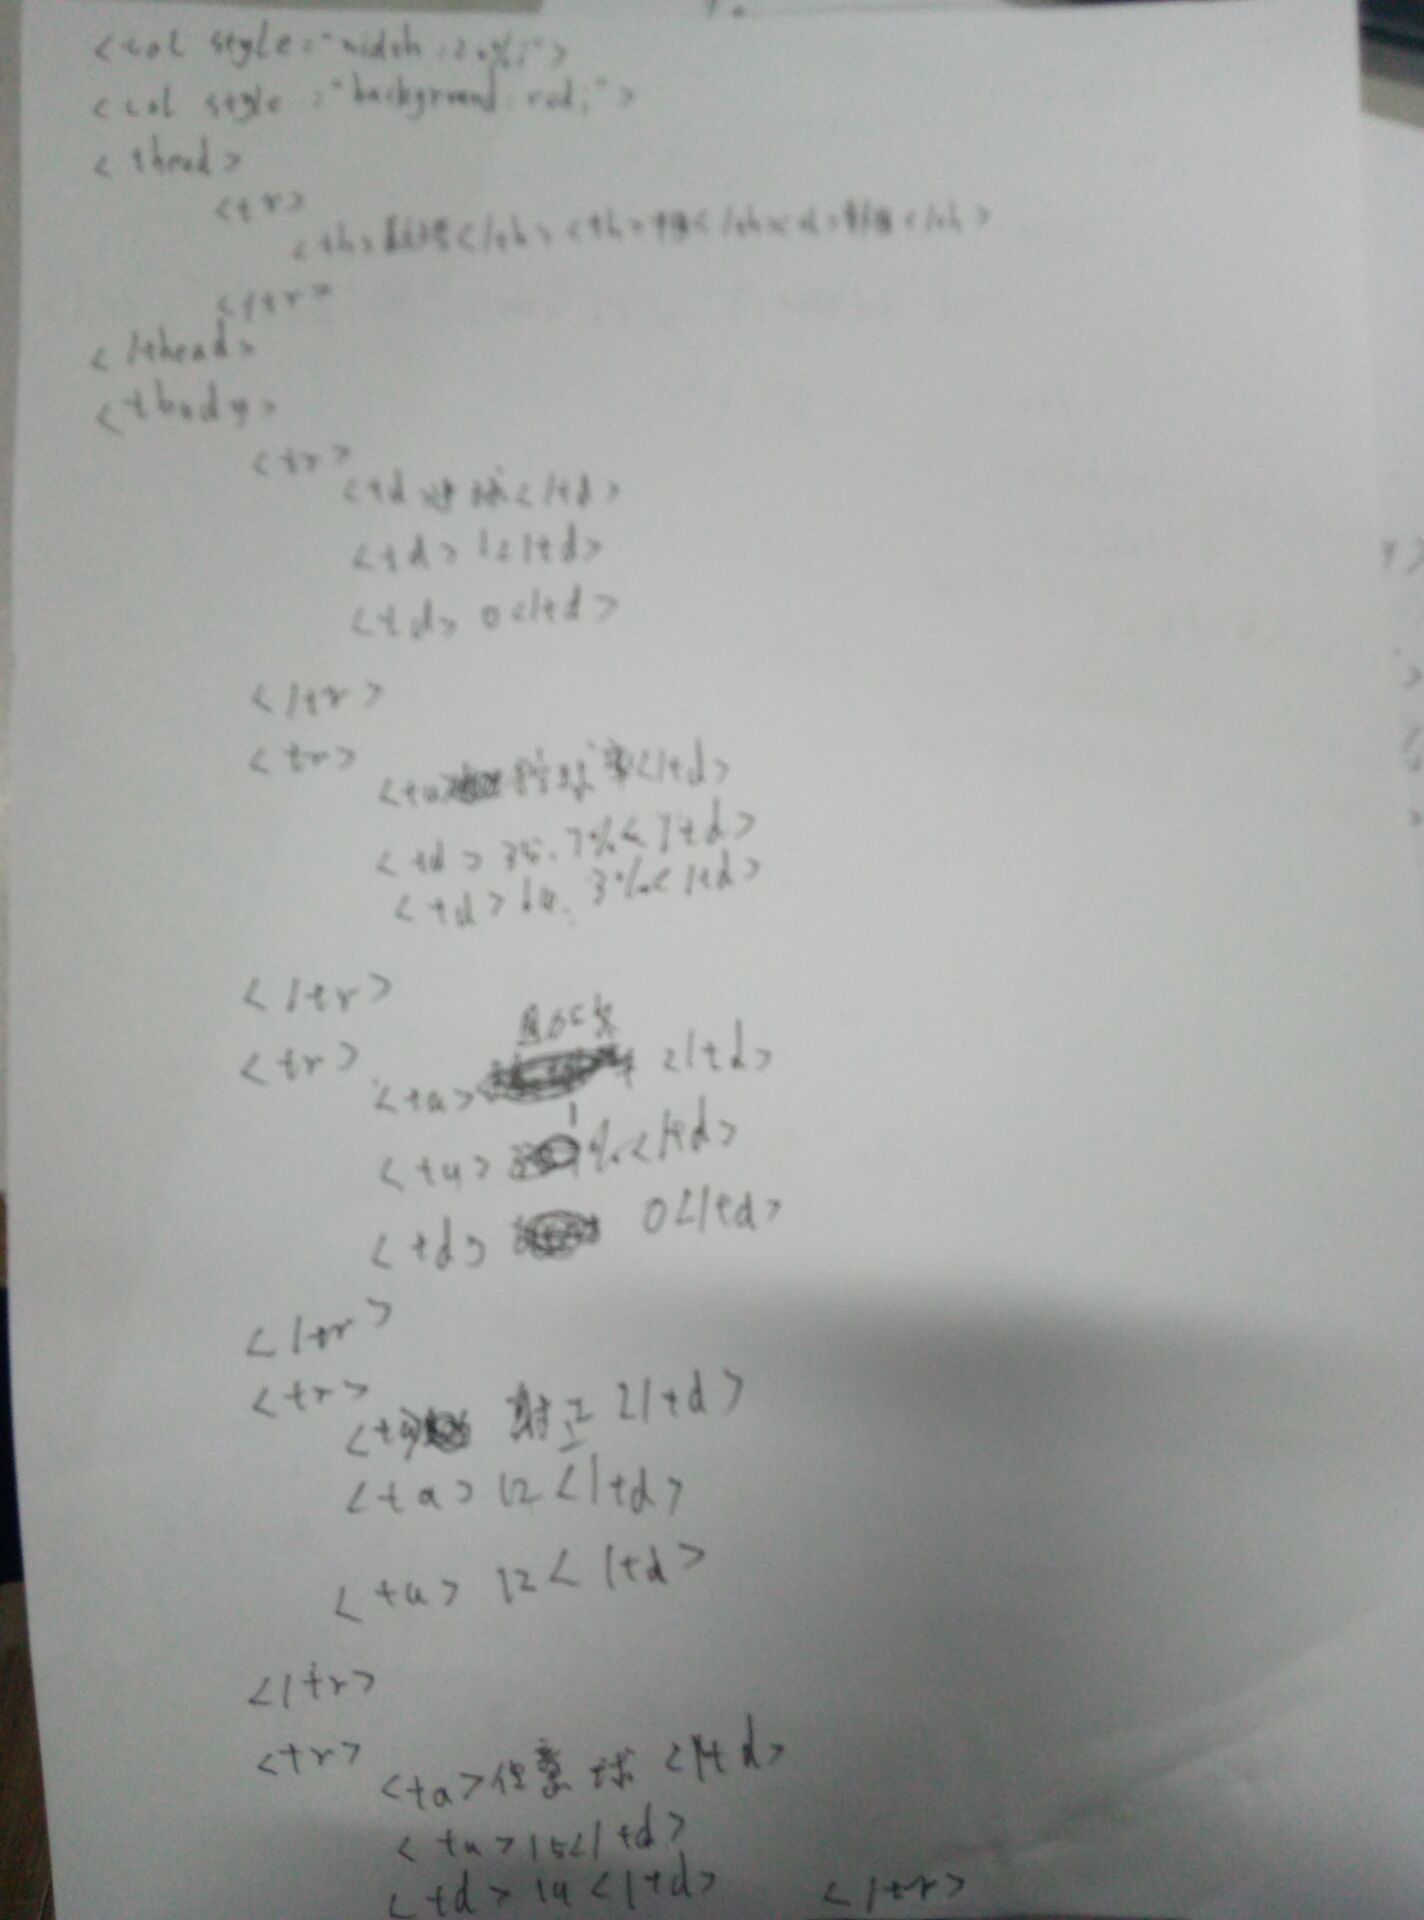 <col style="width:20%;">
<col style="background:red;">
<thead>
<tr>
<th> </th><th> </th><th> </th>
</tr>
</thead>
<tbody>
<tr>
<td 进球</td>
<td>1</td>
<td>0</td>
</tr>
<tr>
<td>控球率</td>
<td>35.7%</td>
<td>64.3%</td>
</tr>
<tr>
<td> </td>
<td>1 </td>
<td>0</td>
</tr>
<tr>
<td>射正</td>
<td>12</td>
<td>12</td>
</tr>
<tr>
<td>任意球</td>
<td>15</td>
<td>14</td> </tr>